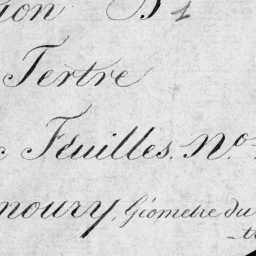 ion B 1
Tertre
Feuilles. No.
noury, Géometre du